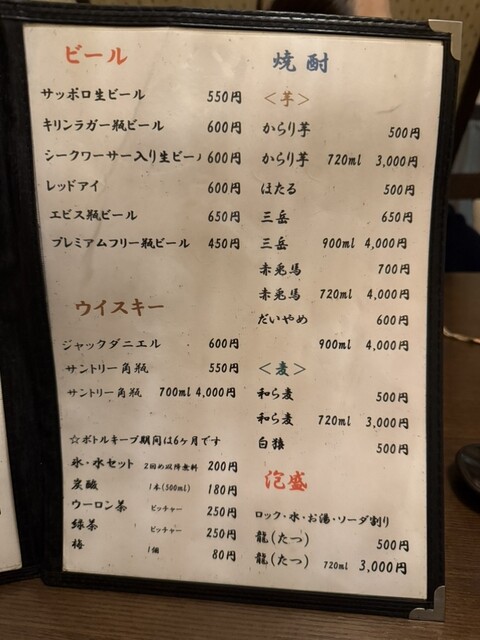 ビール
サッポロ生ビール 550円
キリンラガー瓶ビール 600円
シークワーサー入り生ビール 600円
レッドアイ 600円
エビス瓶ビール 650円
プレミアムフリー瓶ビール 450円
ウイスキー
ジャックダニエル 600円
サントリー角瓶 550円
サントリー角瓶 700ml 4,000円
☆ボトルキープ期間は6ヶ月です
氷・水セット 2回め以降無料 200円
炭酸 1本(500ml) 180円
ウーロン茶 ピッチャー 250円
緑茶 ピッチャー 250円
梅 1個 80円
焼酎
＜芋＞
からり芋 500円
からり芋 720ml 3,000円
ほたる 500円
三岳 650円
三岳 900ml 4,000円
赤兎馬 700円
赤兎馬 720ml 4,000円
だいやめ 600円
900ml 4,000円
＜麦＞
和ら麦 500円
和ら麦 720ml 3,000円
白猿 500円
泡盛
ロック・水・お湯・ソーダ割り
龍(たつ) 500円
龍(たつ) 720ml 3,000円